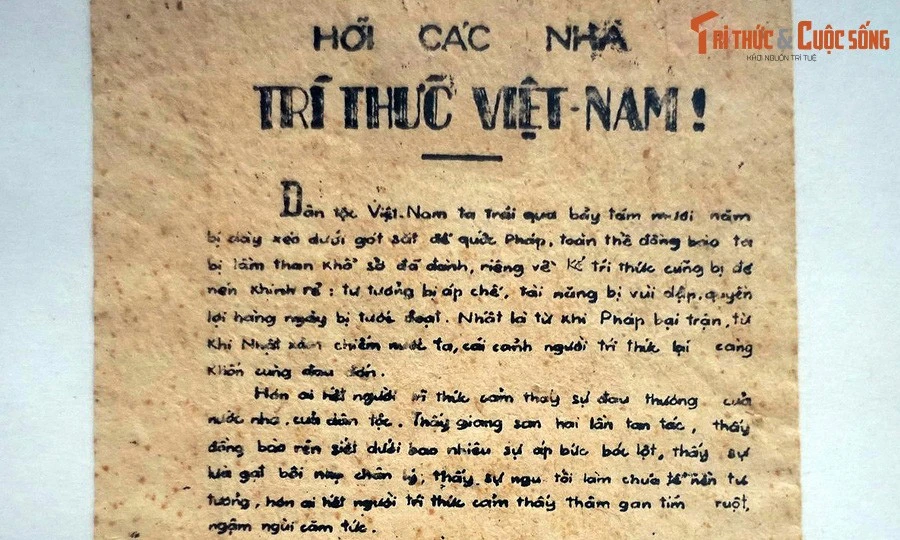 TRI THỨC & CUỘC SỐNG
KHƠI NGUỒN TRÍ TUỆ
HỠI CÁC NHÀ
TRÍ THỨC VIỆT-NAM!
Dân tộc Việt-Nam ta trải qua bảy tám mươi năm
bị dày xéo dưới gót sắt đế quốc Pháp, toàn thể đồng bào ta
bị lầm than khổ sở đã đành, riêng về kẻ trí thức cũng bị đè
nén khinh rẻ: tư tưởng bị áp chế, tài năng bị vùi dập, quyền
lợi hàng ngày bị tước đoạt. Nhất là từ khi Pháp bại trận, từ
khi Nhật xâm chiếm nước ta, cái cảnh người trí thức lại càng
khốn cùng đau đớn.
Hơn ai hết người trí thức cảm thấy sự đau thương của
nước nhà, của dân tộc. Thấy giang san hai lần tan tác, thấy
đồng bào rên siết dưới bao nhiêu sự áp bức bóc lột, thấy sự
lừa gạt bôi nhọ chân lý, thấy sự ngu tối làm chúa tể nền tư
tưởng, hơn ai hết người trí thức cảm thấy thâm gan tím ruột,
ngậm ngùi căm tức.